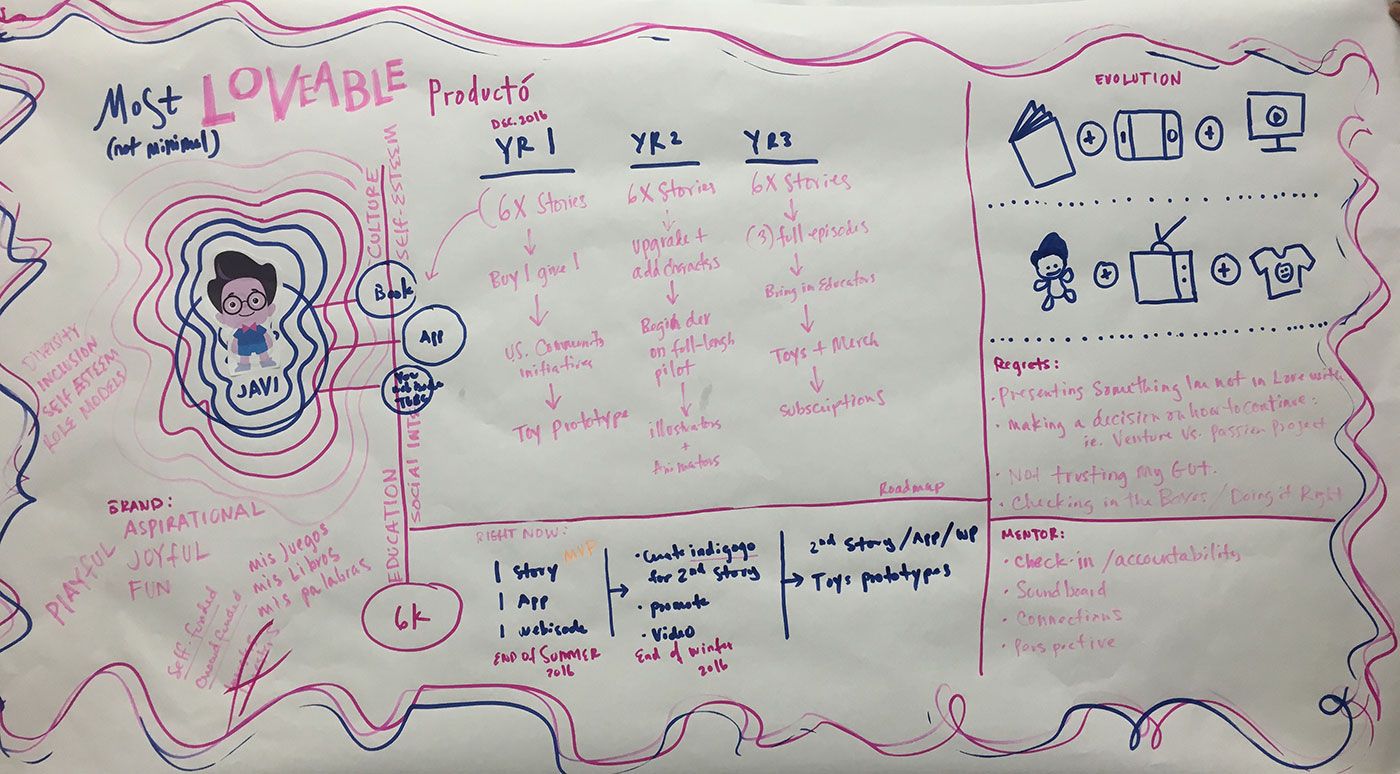 Most LOVEABLE Productó
(not minimal)
CULTURE
SELF-ESTEEM
Book
App
JAVI
SOCIAL INT
EDUCATION
6k
DIVERSITY
INCLUSION
SELF ESTEEM
ROLE MODELS
BRAND:
ASPIRATIONAL
JOYFUL
FUN
PLAYFUL
Self-funded
Crowd funded
mis juegos
mis Libros
mis palabras
DEC. 2016
YR 1
6X Stories
Buy 1 give 1
US. Community
initiatives
Toy Prototype
YR 2
6X Stories
upgrade +
add charactrs
Begin dev
on full-length
pilot
illustrators
+
Animators
YR 3
6X Stories
(3) full episodes
Bring in Educators
Toys + Merch
subscriptions
Roadmap
RIGHT NOW:
MVP
1 Story
1 App
1 webisode
END OF SUMMER
2016
• Create indigogo
for 2nd Story
• promote
• Video
End of winter
2016
2nd Story / App / WP
Toys prototypes
EVOLUTION
Regrets:
• Presenting Something Im not in Love with
• making a decision on how to continue:
ie. Venture vs. Passion project
• Not trusting my GUT.
• Checking in the Boxes / Doing it Right
MENTOR:
• check-in / accountability
• Sound board
• Connections
• perspective